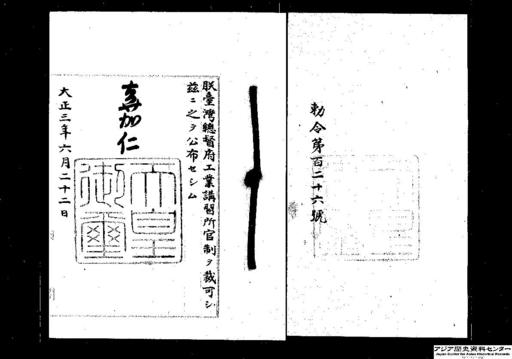 勅令第百二十六號
朕臺灣總督府工業講習所官制ヲ裁可シ
茲ニ之ヲ公布セシム
嘉仁
大正三年六月二十二日
天皇
御璽
アジア歴史資料センター
Japan Center for Asian Historical Records